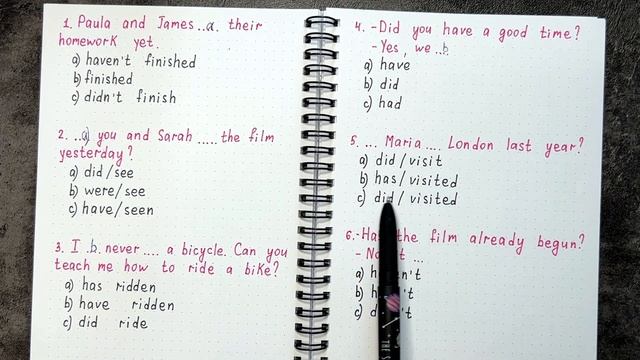 1. Paula and James ..a. their
homework yet.
a) haven't finished
b) finished
c) didn't finish
2. ..a) you and Sarah ..... the film
yesterday?
a) did/see
b) were/see
c) have/seen
3. I .b. never .... a bicycle. Can you
teach me how to ride a bike?
a) has ridden
b) have ridden
c) did ride
4. -Did you have a good time?
-Yes, we ..b
a) have
b) did
c) had
5. ... Maria .... London last year?
a) did/visit
b) has/visited
c) did/visited
6.- the film already begun?
a)
b)
c)